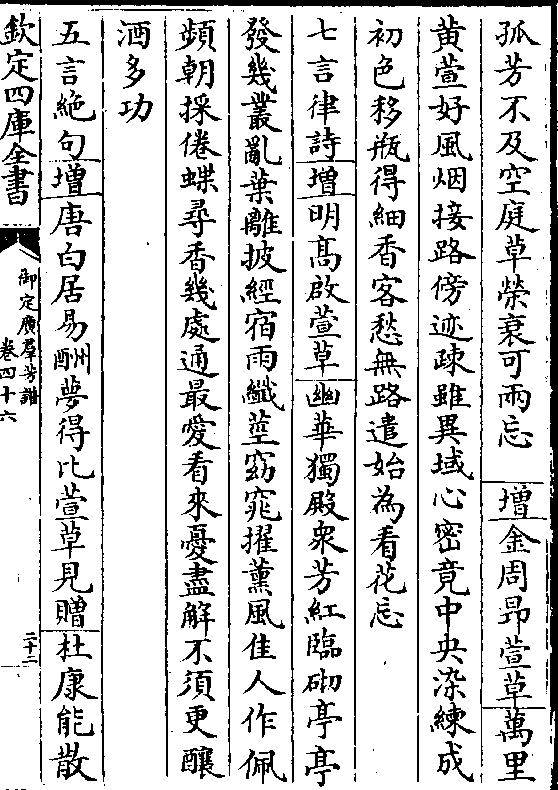 孤芳不及空庭草榮衰可兩忘　增金周昂萱草萬里
黄萱好風烟接路傍迹疎雖異域心密竟中央染練成
初色移瓶得細香客愁無路遣始為看花忘
七言律詩增明髙啟萱草幽華獨殿衆芳紅臨砌亭亭
發幾叢亂葉離披經宿雨纎莖窈窕擢薰風佳人作佩
頻朝採倦蝶尋香幾處通最愛看來憂盡解不須更釀
酒多功
五言絶句增唐白居易酬夢得比萱草見贈杜康能散
欽定四庫全書
御定廣羣芳譜
卷四十六
二十二